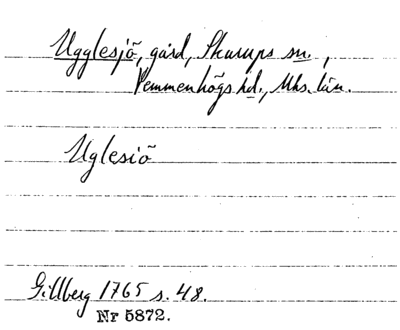 Ugglesjö, gård, Skurups sn.,
Vemmenhögs hd., Mhs. län.
Uglesiö
Gillberg 1765 s. 48.
Nr 5872.